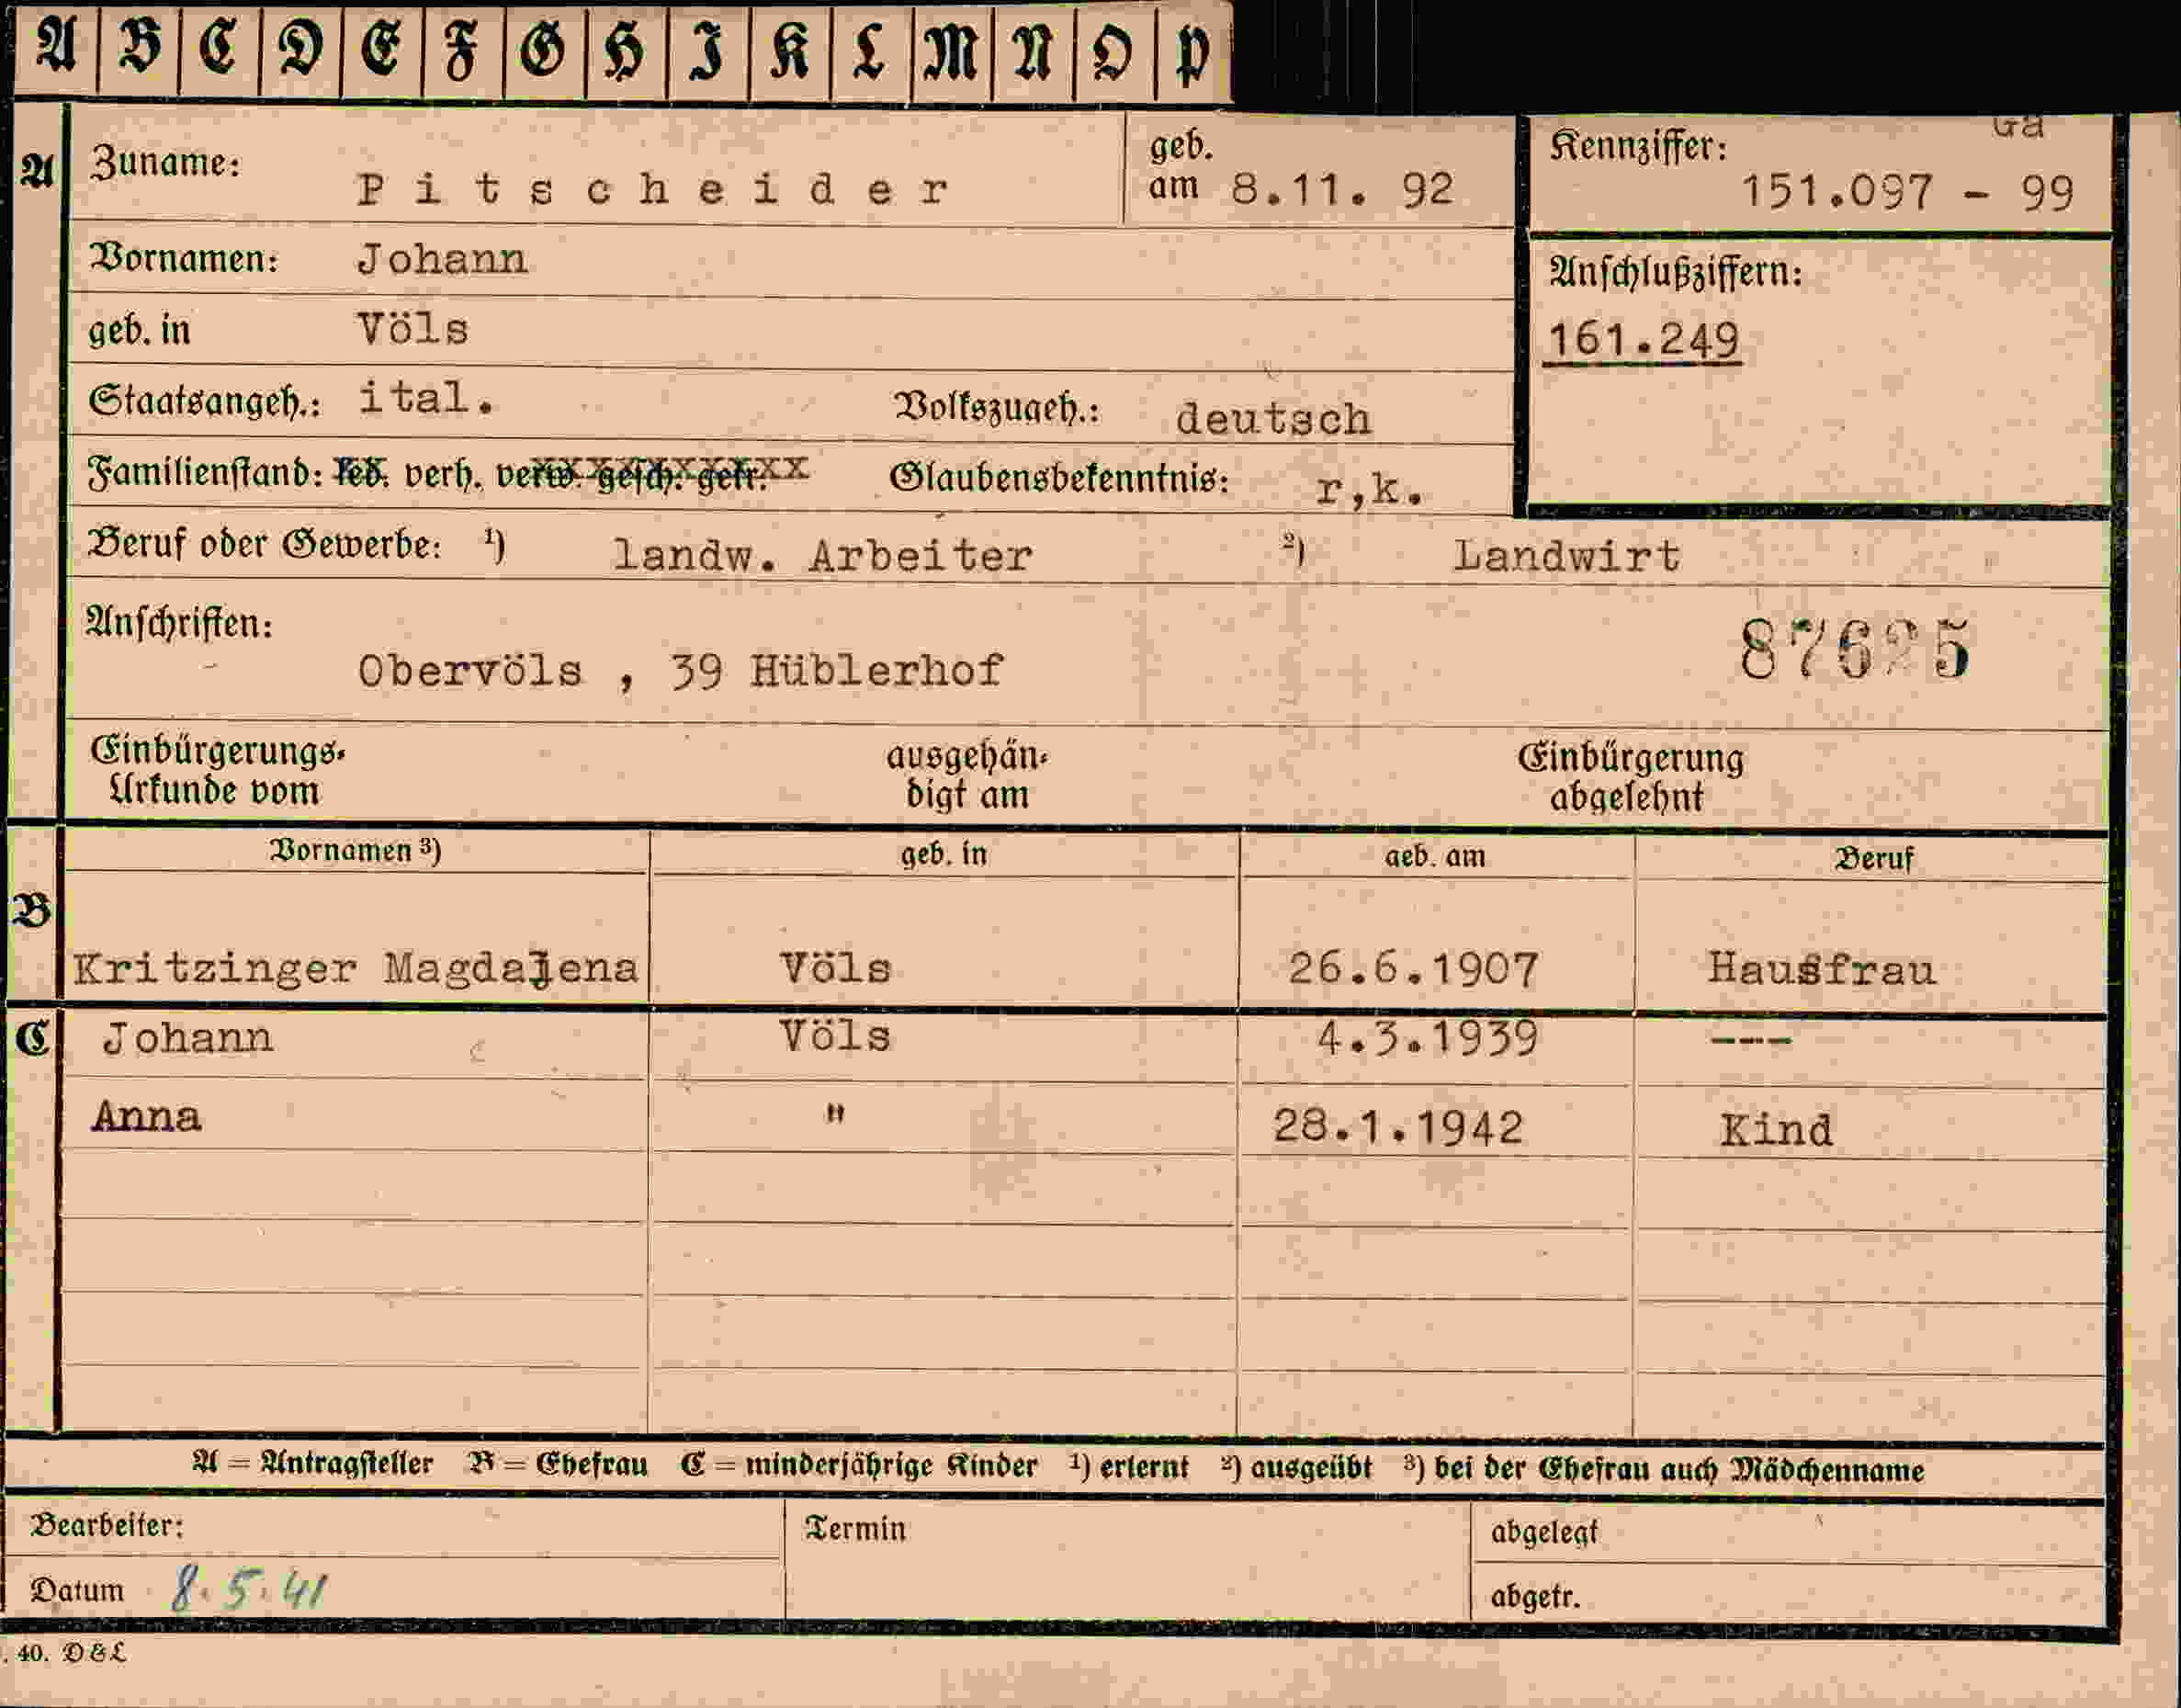 A B C D E F G H I K L M N O P
Ga
A Zuname: Pitscheider geb. am 8.11. 92 Kennziffer: 151.097 - 99
Vornamen: Johann Anschlußziffern:
geb. in Völs 161.249
Staatsangeh.: ital. Volkszugeh.: deutsch
Familienstand: led. verh. verw. gesch. getr. Glaubensbekenntnis: r,k.
Beruf oder Gewerbe: ¹) landw. Arbeiter ²) Landwirt
Anschriften:
Obervöls , 39 Hüblerhof
Einbürgerungs- ausgehän- Einbürgerung
Urkunde vom digt am abgelehnt
Vornamen ³) geb. in geb. am Beruf
B
Kritzinger Magdalena Völs 26.6.1907 Hausfrau
C Johann Völs 4.3.1939 ---
Anna " 28.1.1942 Kind
A = Antragsteller B = Ehefrau C = minderjährige Kinder ¹) erlernt ²) ausgeübt ³) bei der Ehefrau auch Mädchenname
Bearbeiter: Termin abgelegt
Datum 8.5.41 abgetr.
. 40. D&L